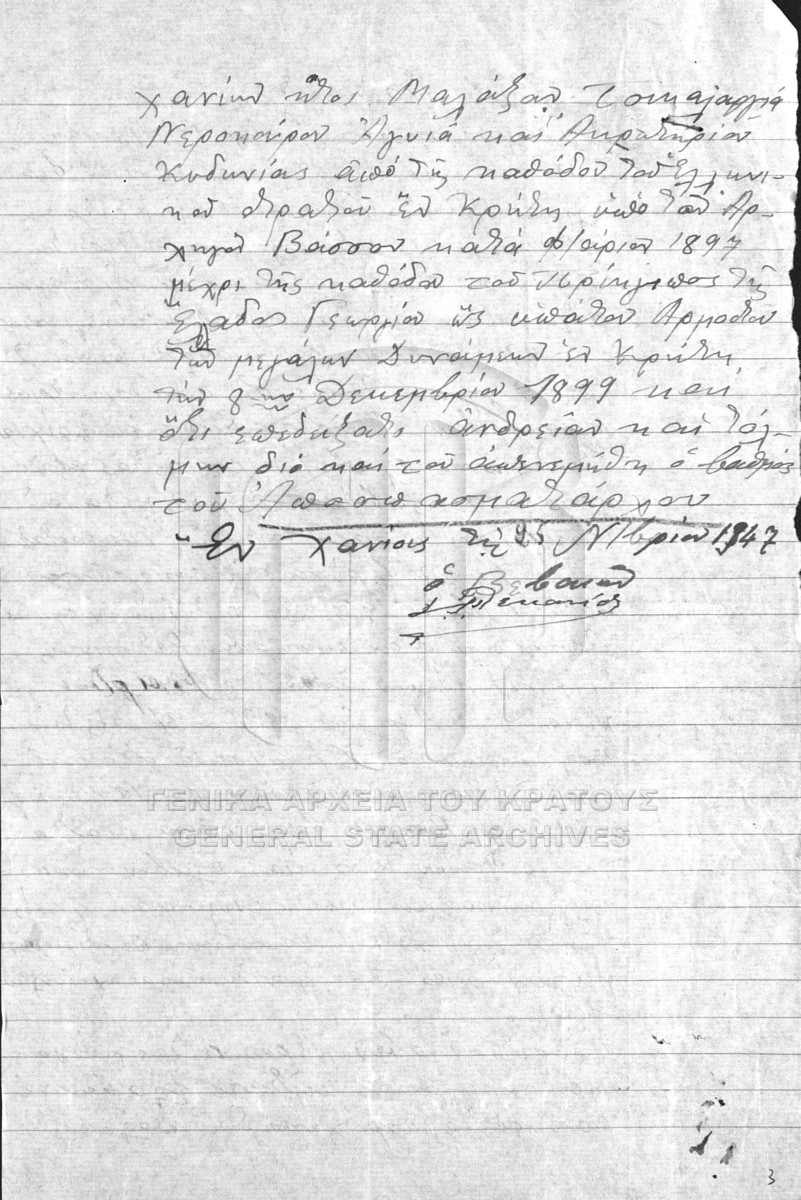 Χανίων ἤτοι Μαλάξαν Τσικαλαριά
Νεροκούρου Ἀγυιά καί Ἀκρωτηρίου
Κυδωνίας ἀπό τῆς καθόδου τοῦ Ἑλληνι-
κοῦ στρατοῦ ἐν Κρήτῃ ὑπό τόν Ἀρ-
χηγόν Βάσσον κατά Φ/άριον 1897
μέχρι τῆς καθόδου τοῦ Πρίγκηπος τῆς
Ἑλλαδος Γεωργίου ὡς ὑπάτου Ἁρμοστοῦ
τῶν μεγάλων Δυνάμεων ἐν Κρήτῃ
τήν 8ην Δεκεμβρίου 1899 καί
ὅτι ἐπεδείξατο ἀνδρείαν καί τόλ-
μην διό καί τοῦ ἀπενεμήθη ὁ βαθμός
τοῦ Ἀποσπασματάρχου
Ἐν Χανίοις τῇ 25 Ν/βρίου 1947
ὁ Βεβαιῶν
ΓΕΝΙΚΑ ΑΡΧΕΙΑ ΤΟΥ ΚΡΑΤΟΥΣ
GENERAL STATE ARCHIVES
3